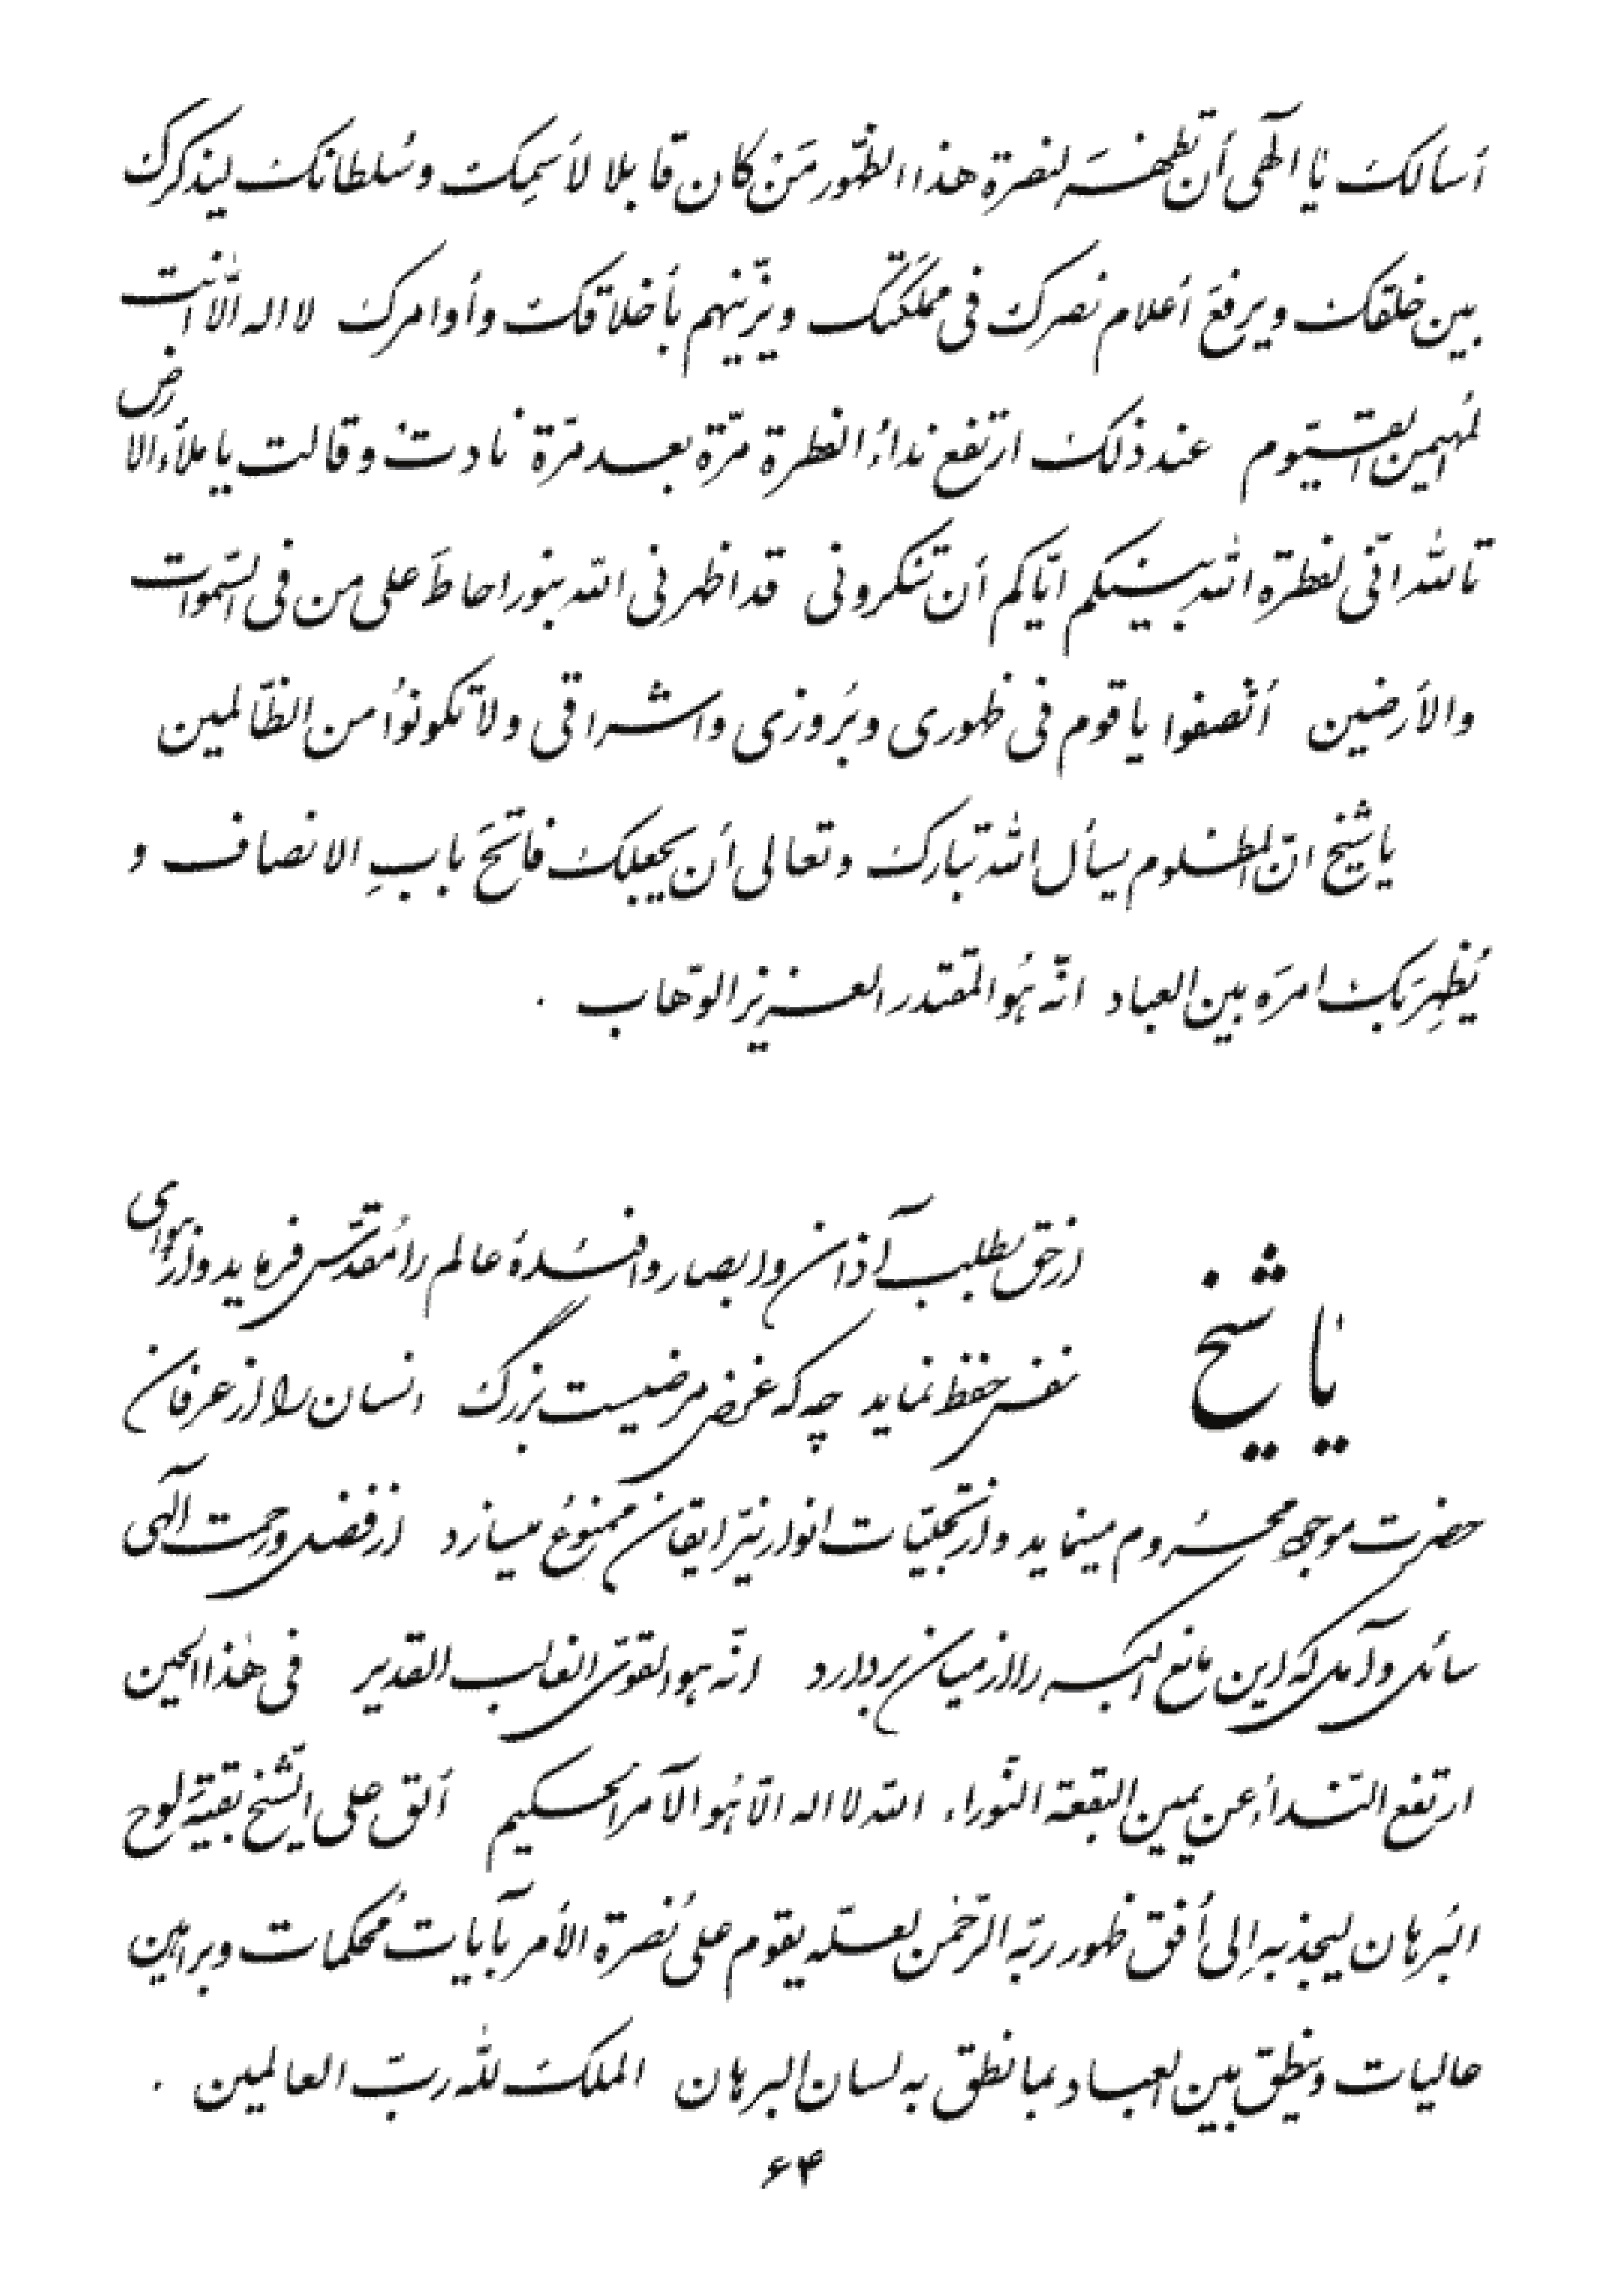 أسألك يا الٓهی أن تظهر لنصرة هذا الظّهور مَن كان قابلا لأسمِك وسُلطانك ليذكرك
بين خلقك ويرفعَ أعلام نصرك فی مملكتِك ويزيّنهم بأخلاقك وأوامرك لا اله الّا أنت
المُهيمن القيّوم عند ذلك ارتفع نداءُ الفطرة مرّة بعد مرّة نادت وقالت يا ملأ الأرض
تاللّه انّی لفطرة اللّه بينكم ايّاكم أن تنكرونی قد اظهرنی اللّه بنور احاطَ علی من فی السّموات
والأرضين أنصفوا يا قوم فی ظهوری وبُروزی واشراقی ولا تكونوُا من الظّالمين
يا شيخ انّ المظلوم يسأل اللّه تبارك وتعالی أن يجعلك فاتحَ بابِ الانصاف و
يُظهِرَ بك امرَه بين العباد انّه هُو المقتدر العزيز الوّهاب .
يا شيخ
از حق بطلب آذان و ابصار و افئدهٔ عالم را مُقدّس فرمايد و از هوای
نفس حفظ نمايد چه كه غرض مرضيست بزرگ انسان را از عرفان
حضرت موجود محروم مينمايد و از تجلّيات انوار نيّر ايقان ممنوُع ميسازد از فضل و رحمت الٓهی
سائل و آمل كه اين مانع اكبر را از ميان بردارد انّه هو القویّ الغالب القدير فی هٰذا الحين
ارتفع النّداءُ عن يمين البقعة النّوراء اللّه لا اله الّا هُو الآمر الحكيم ألق علی الشّيخ بقيّةَ لوح
البُرهان ليجذبه اِلی أفق ظهور ربّه الرّحمن لعلّه يقوم علی نُصرة الأمر بآيات مُحكمات وبراهين
عاليات وينطق بين العباد بما نطق به لسان البرهان الملك للّه ربّ العالمين .
۶۴